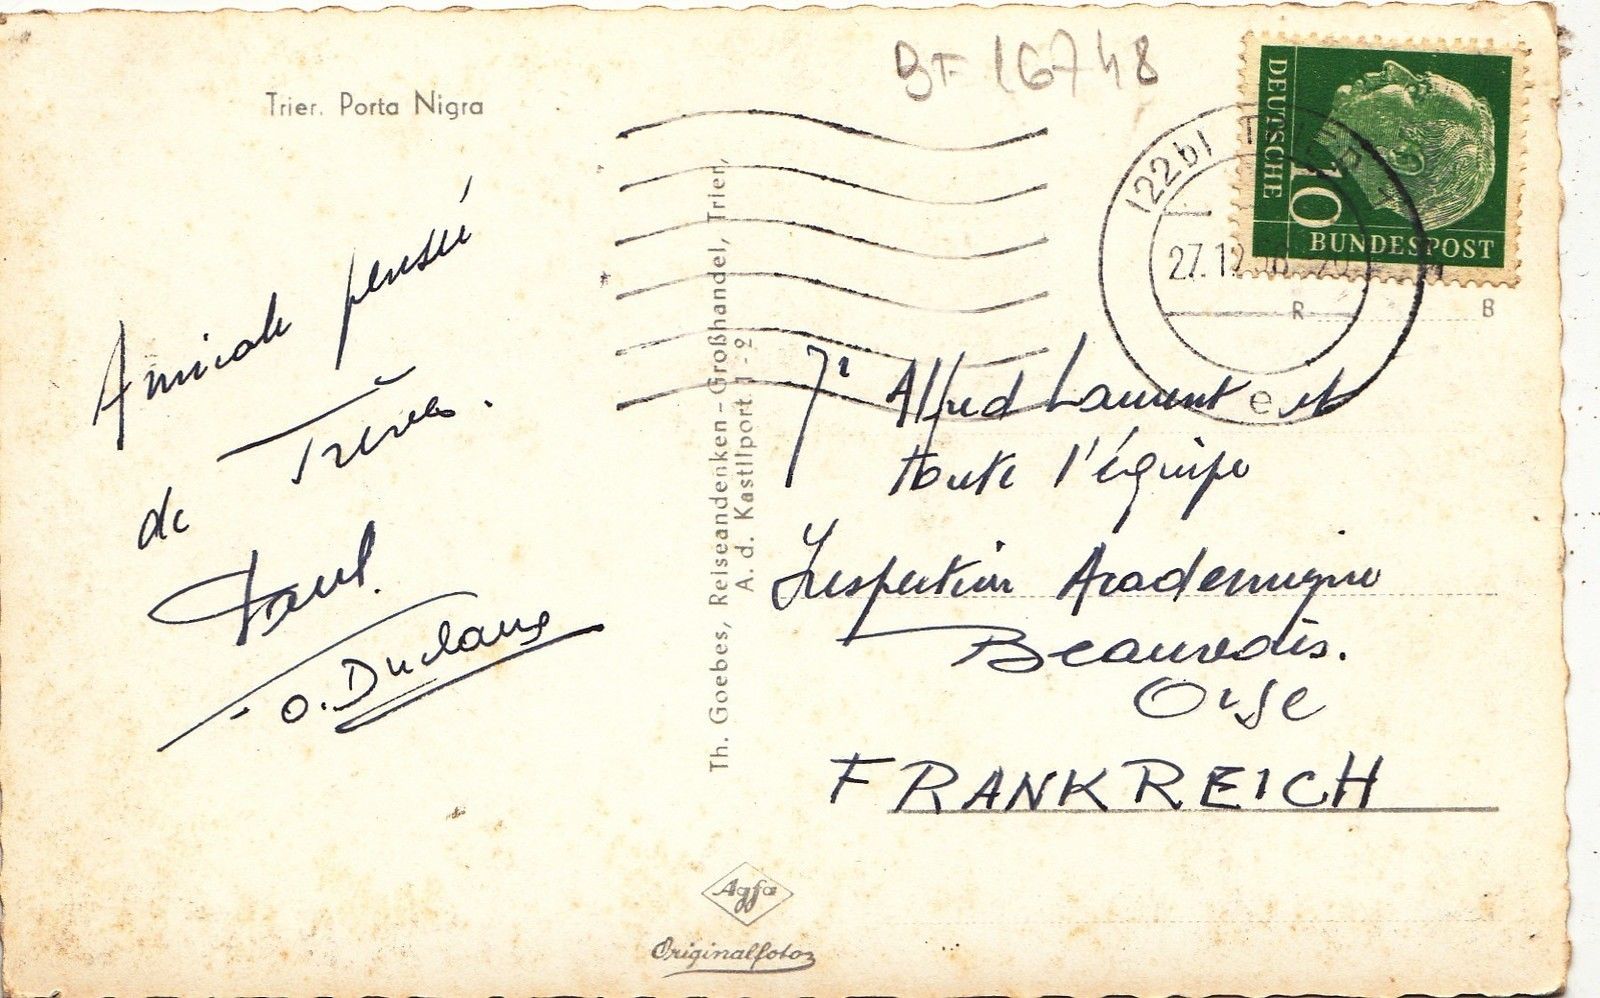 Trier. Porta Nigra
BF 16748
DEUTSCHE
10
BUNDESPOST
(22b) TRIER
27.12
e
R
B
Amicale pensée
de Trèves.
Paul.
O. Duclaux
Th. Goebes, Reiseandenken - Großhandel, Trier,
A. d. Kastilport 1 - 2
Alfred Laurent et
toute l'équipe
Inspection Académique
Beauvais.
Oise
FRANKREICH
Agfa
Originalfoto